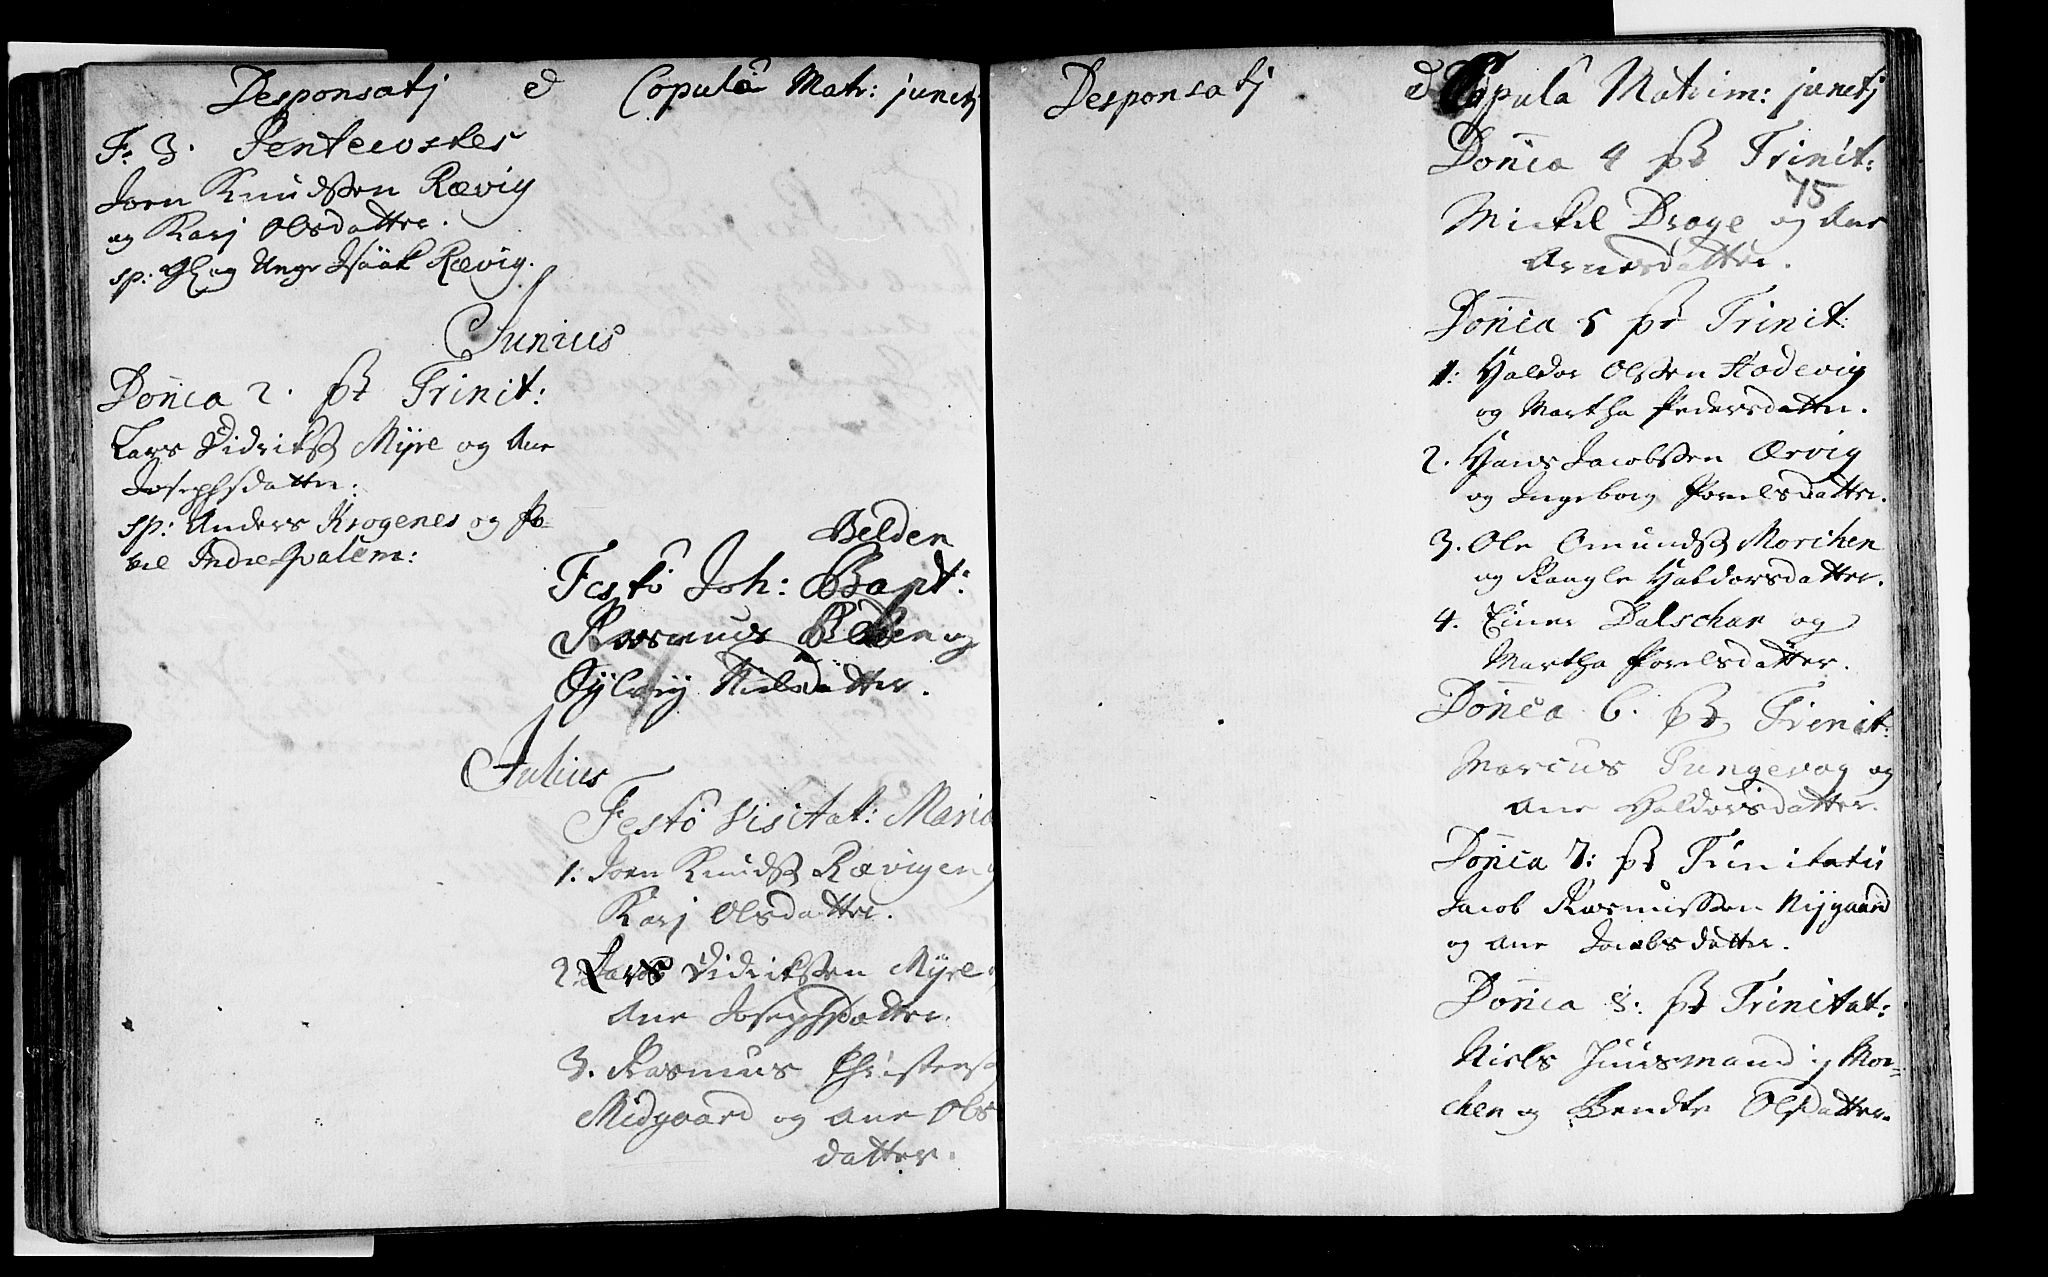 Desponsatj & Copulâ Matr: junctj
F. 3. Pentecostes
Joen Knudssen Rævig
og Karj Olsdatter.
sp: Gl og Unge Isaak Rævig.
Junius
Don̄ica 2. pt Trinit:
Lars Didrikss Myre og Ane
Josephsdatter.
sp: Anders Krogenes og Po-
vel Indrepalem:
Belden
Festô Joh: Bapt:
Rasmus Belden og
Sylvij Nielsdatter.
Julius
Festô Visitat: Mariæ
1: Joen Knudss Rævigen
Karj Olsdatter.
2. Lars Didrikssen Myre
Ane Josephsdatter.
3. Rasmus Christenss
Midgaard og Ane Ols
datter.
Desponsatj & Copulâ Matrim: junctj
Don̄ica 4 pt Trinit:
75
Mickel Drage og Ane
Arnesdatter.
Don̄ica 5 pt Trinit:
1: Haldor Olssen Hadevig
og Martha Pedersdatter.
2. Hans Jacobssen Ærvig
og Ingeborg Povelsdatter.
3. Ole Omundss Morchen
og Raagle Haldorsdatter.
4. Einer Dalschar og
Martha Povelsdatter.
Don̄ica 6. pt Trinit:
Marcus Tungevog og
Ane Haldorsdatter.
Don̄ica 7: pt Trinitatis
Jacob Rasmussen Nijgaard
og Ane Jacobsdatter.
Don̄ica 8: pt Trinitat:
Niels Huusmand ij Mor-
chen og Bendte Olsdatter.